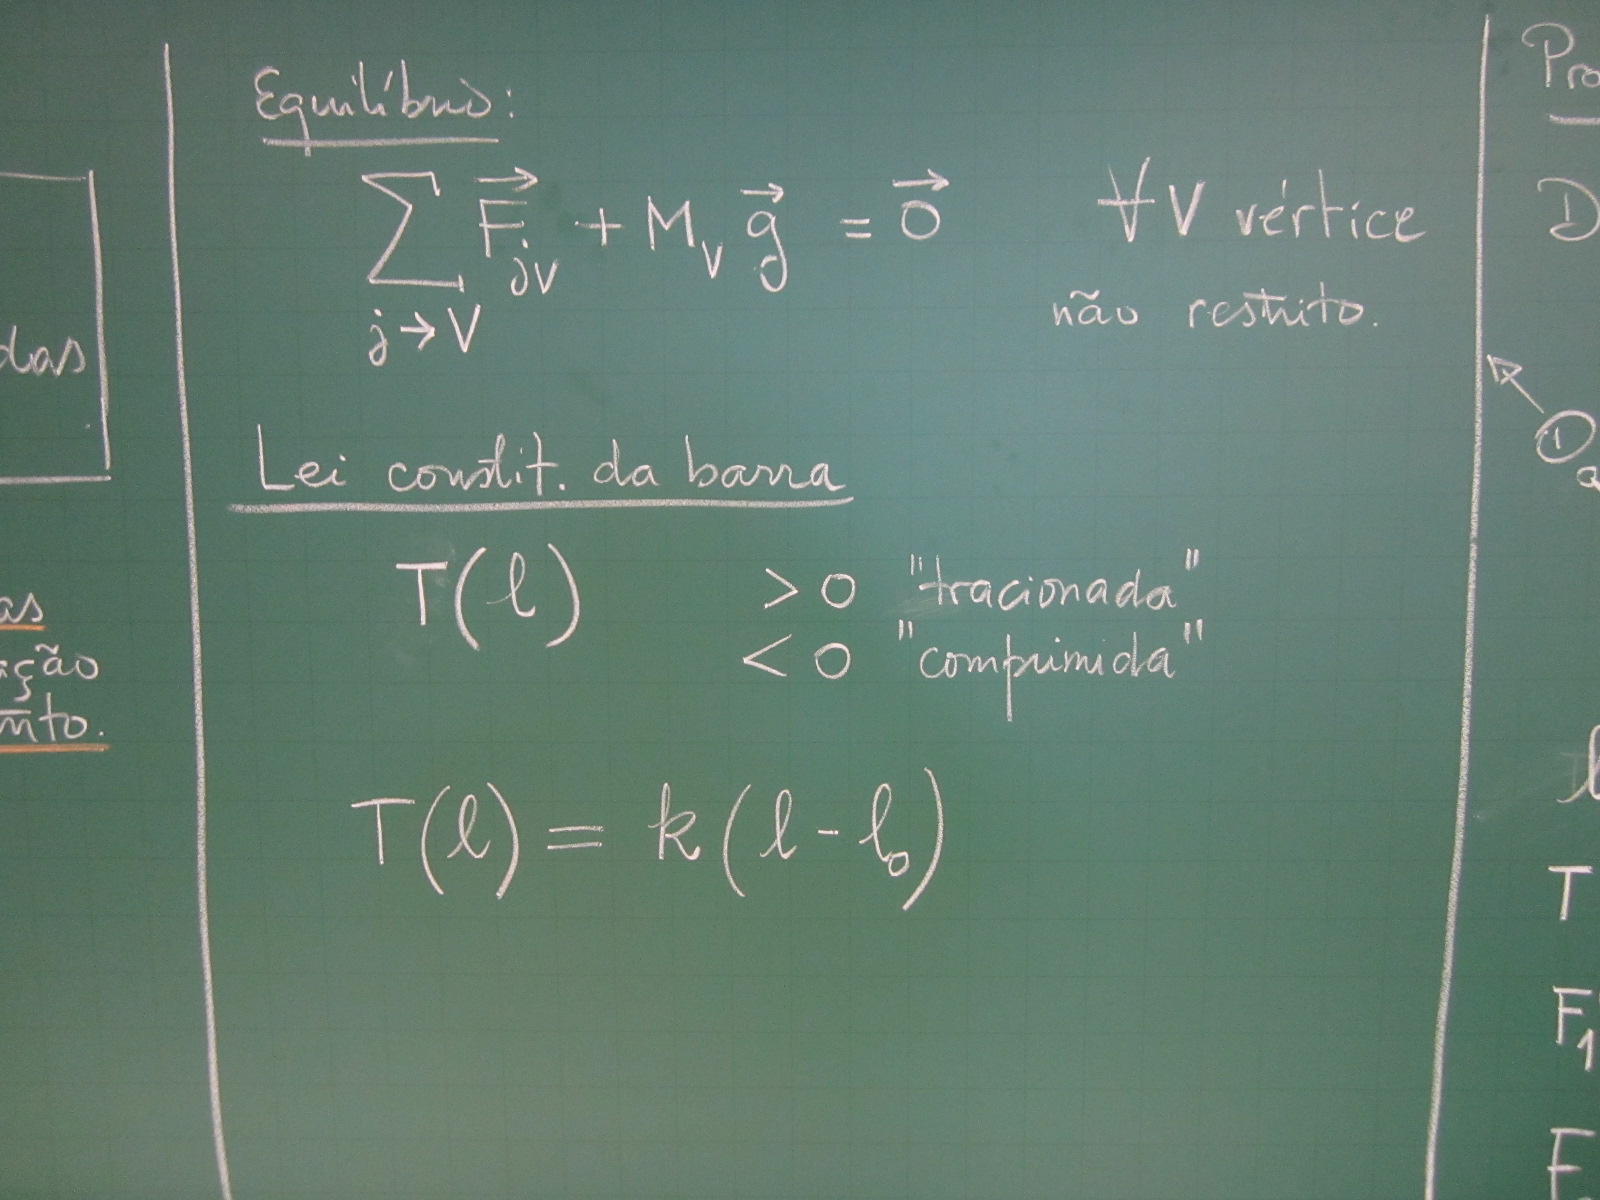 das
as
ação
nto.
Equilíbrio:
∑ F⃗jV + M_V g⃗ = 0⃗ ∀ V vértice
j→V não restrito.
Lei constit. da barra
T(l) > 0 "tracionada"
< 0 "comprimida"
T(l) = k(l - l₀)
Pro
D
①
a
T
F₁
F